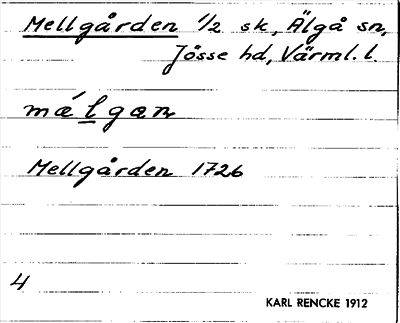 Mellgården 1/2 sk, Älgå sn,
Jösse hd, Värml. l.
málgæn
Mellgården 1726
4
KARL RENCKE 1912